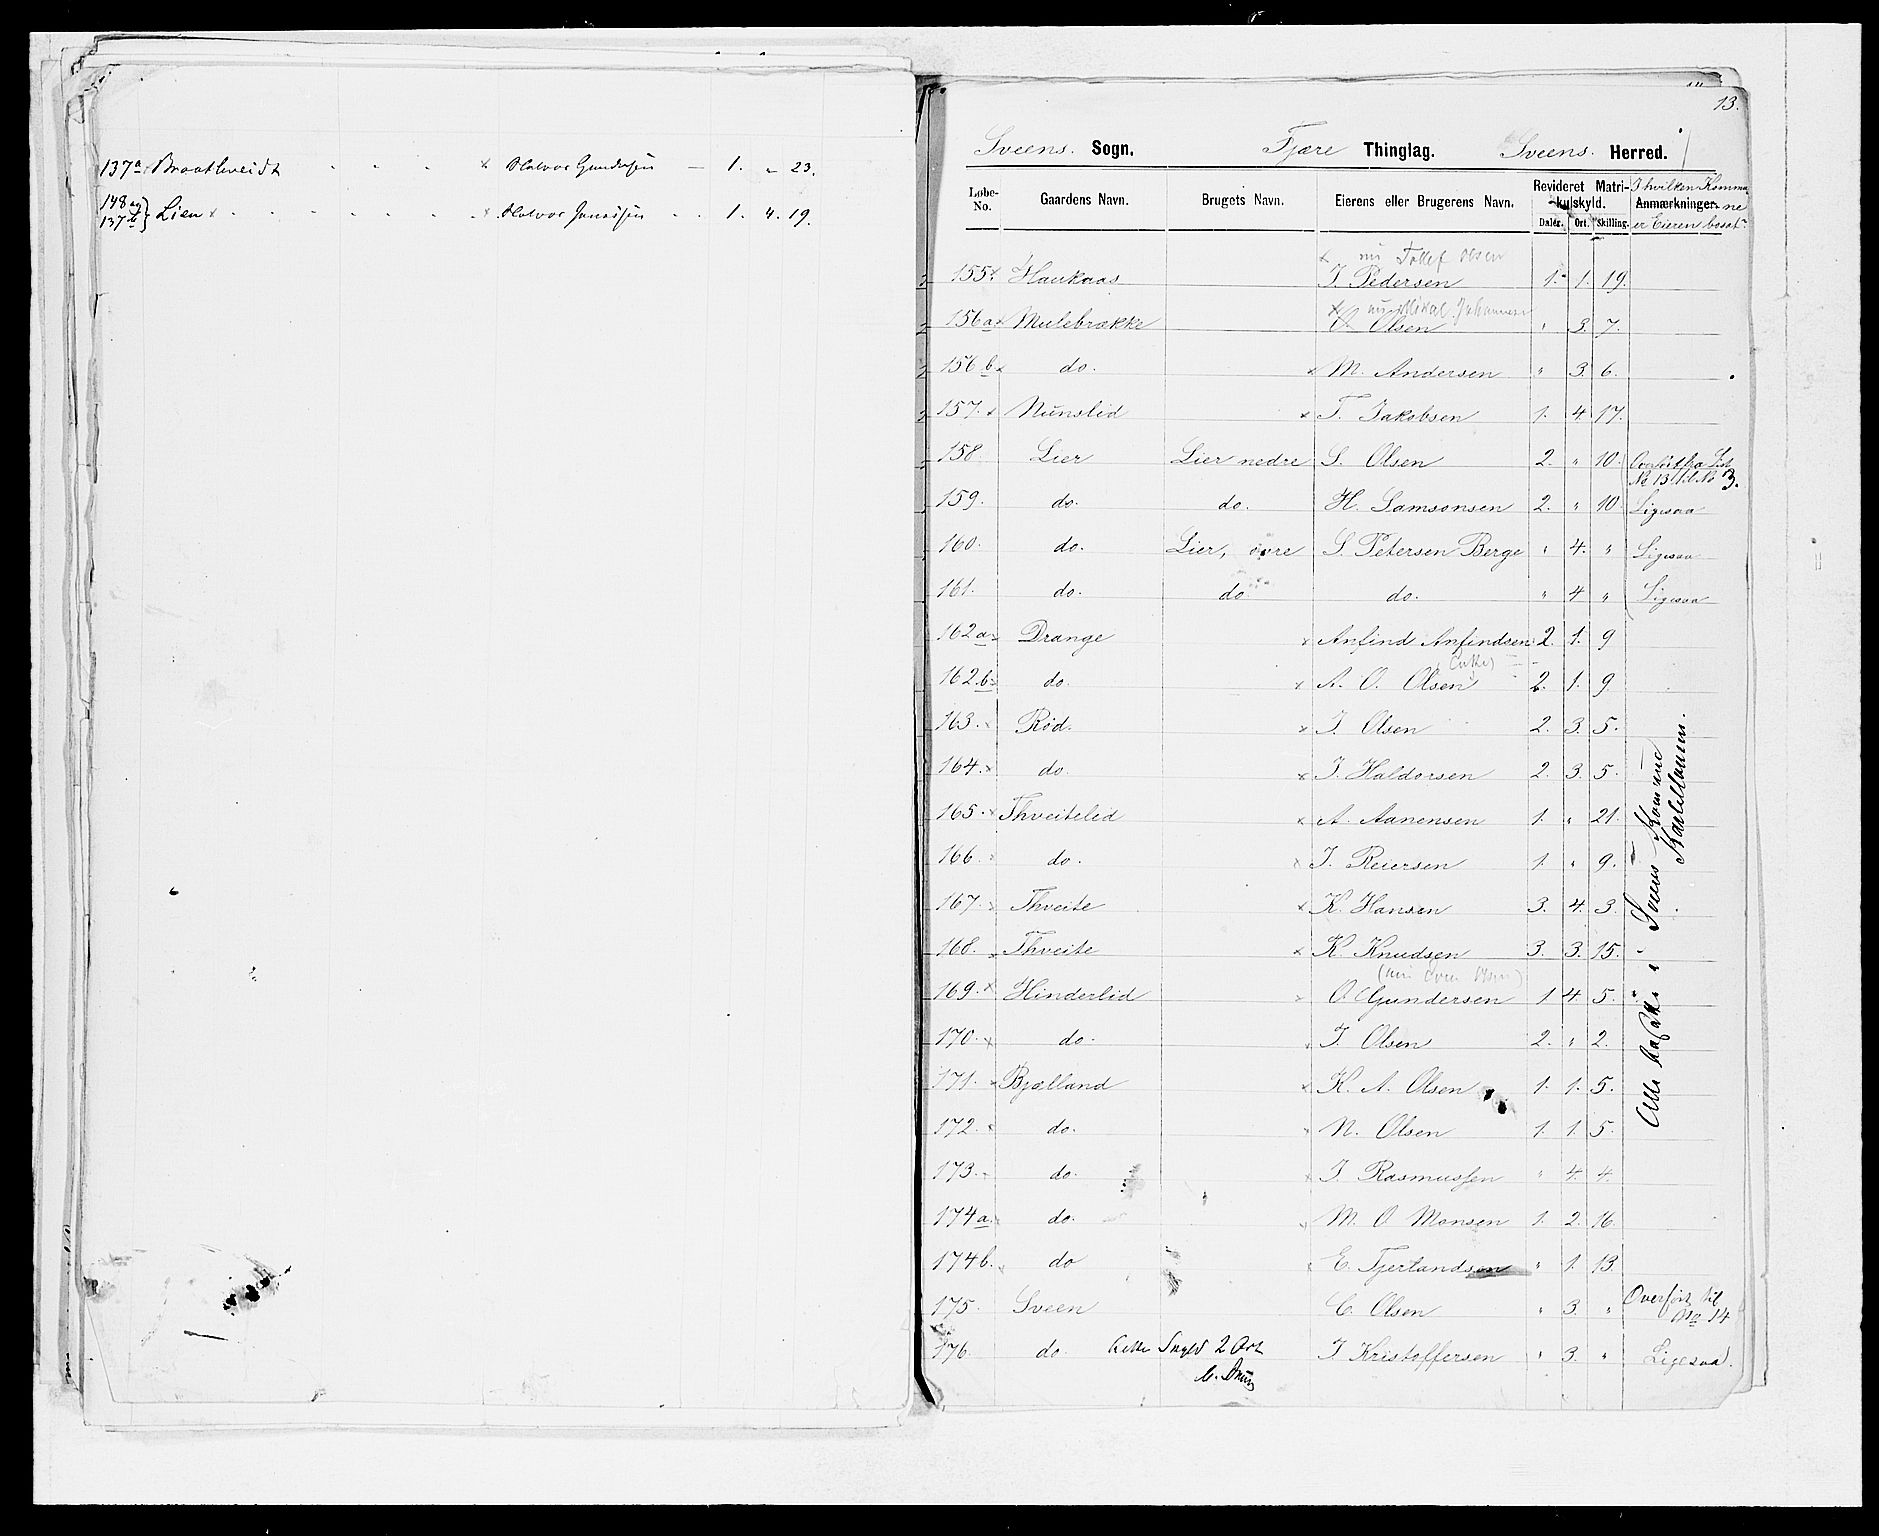 137a Braathveidt " " " x Halvor Gundersen — 1. " 23.
148 ag
137 b } Lien x x Halvor Jonassen 1. 4. 19.
13.
Sveens Sogn. Fjære Thinglag. Sveens Herred.
Løbe-No. Gaardens Navn. Brugets Navn. Eierens eller Brugerens Navn. Revideret Matrikulskyld. Daler. Ort. Skilling. Anmærkninger. I hvilken Kommune er Eieren bosat
x nu Tollef Olsen
155 x Haukaas J Pedersen 1. 1. 19.
x nu Mikal Johannesen
156a x Mulebrække O Olsen " 3. 7.
156 b x do. x M. Andersen " 3. 6.
157. x Nunslid x T. Jakobsen 1. 4. 17.
158. Lier Lier nedre S. Olsen 2. " 10. Overført fra List No 13 til No 3.
159. do. do. H. Samsonsen 2. " 10. Ligesaa
160. do. Lier, øvre S. Petersen Berge " 4. " Ligesaa
161. do. do do. " 4 " Ligesaa
162a Drange x Anfind Anfindsen 2. 1. 9
(Enke)
162.b do. x A. O. Olsen 2. 1. 9.
163. Rød. x J. Olsen 2. 3. 5.
164. x do. x J. Haldorsen 2. 3. 5.
165. x Thveitelid x A. Aanensen 1. " 21.
166. do. x J. Reiersen 1. " 9.
167. x Thveite x K. Hansen 3. 4. 3.
168. x Thveite x K. Knudsen 3. 3. 15.
(nu Olsen)
169. x Hinderlid x O Gundersen 1 4. 5.
170. x do. J. Olsen 2. " 2.
171. x Bjælland x K. A. Olsen 1. 1. 5.
172. x do. x N. Olsen 1. 1. 5.
173. do. x J. Rasmussen " 4. 4.
174 a. do. M. O Monsen 1. 2. 16.
174 b. do E. Tjerlandsen " 1. 13
175. Sveen C. Olsen " 3. " Overført til No 14
176. do. Skyld 2 Ort J Kristoffersen " 3. " Ligesaa.
Alle bosatte i Sveens Kommune